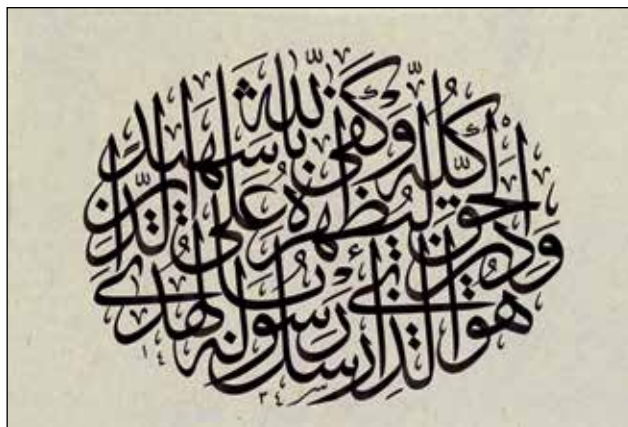 هو الذي أرسل رسوله بالهدى
ودين الحق ليظهره على الدين
كله وكفى بالله شهيدا
١٤
٣٤